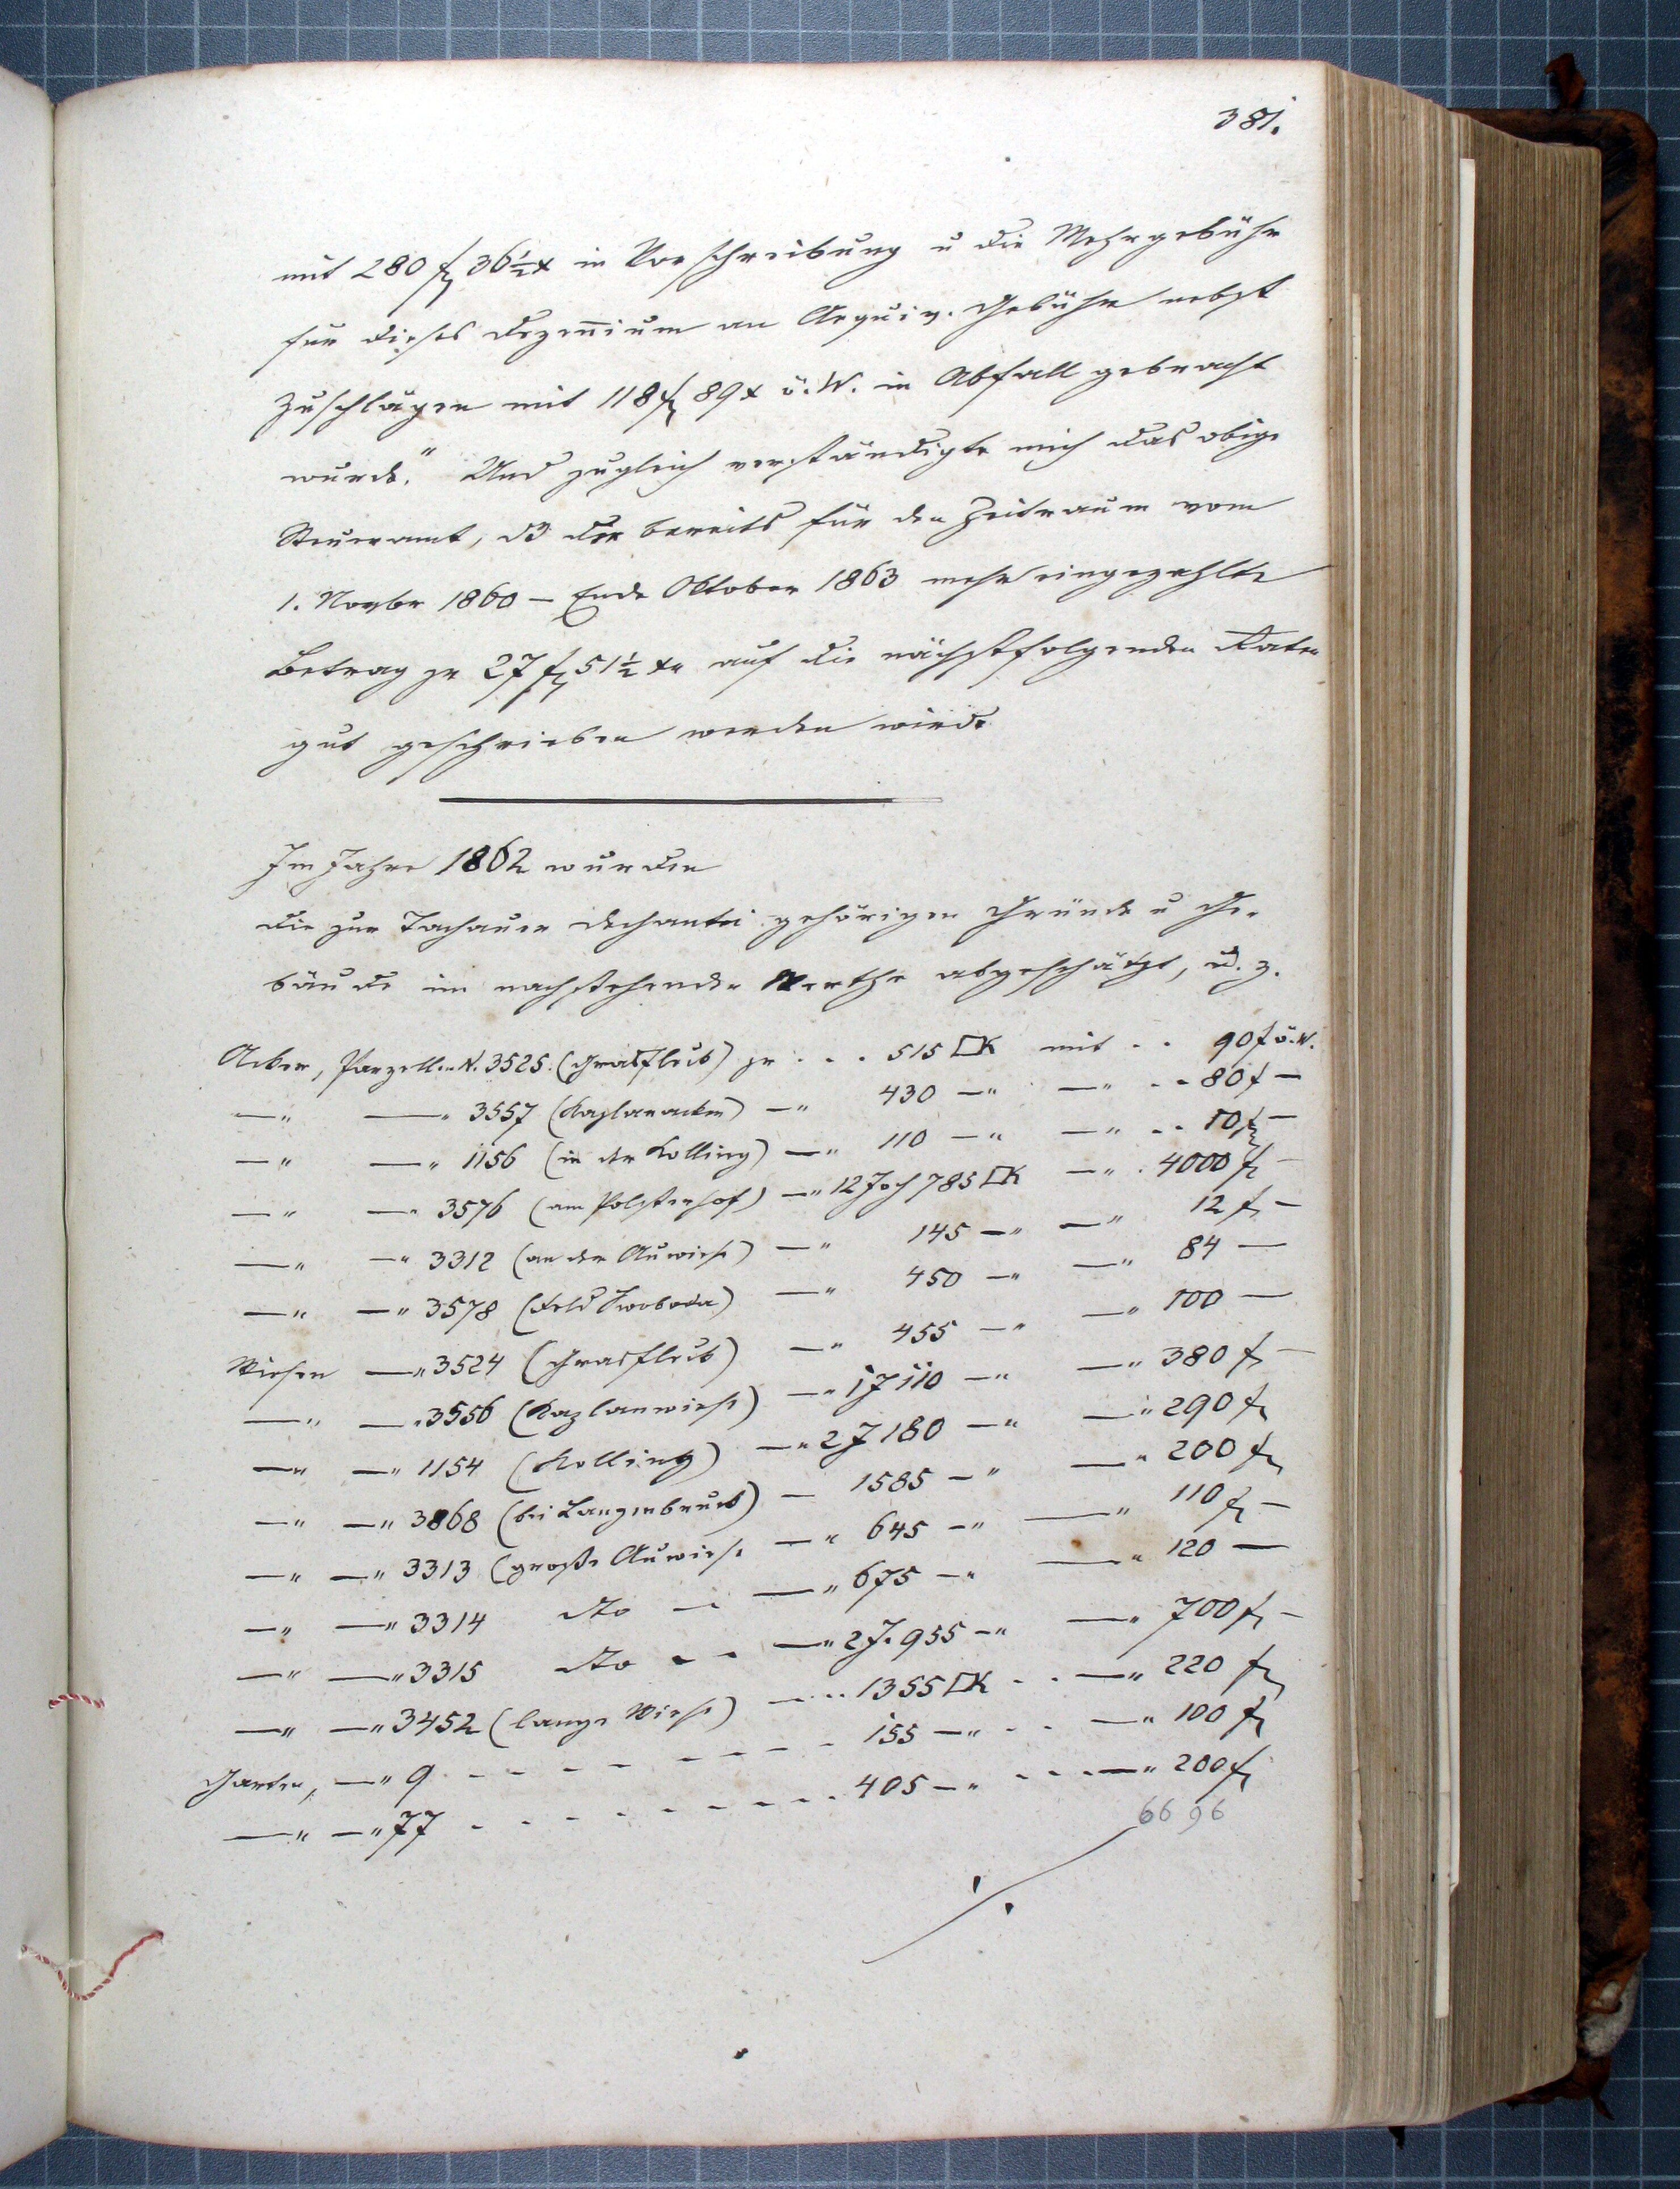 381.
mit 280 f 36½ x in Vorschreibung u die Mehrgebühr
für dieses Dezenium an Aequiv. Gebühr nebst
Zuschlägen mit 118 f 89 x ö.W. in Abfall gebracht
wurde." Und zugleich verständigte mich das obige
Steueramt, dß der bereits für den Zeitraum vom
1. Novbr 1860 – Ende Oktober 1863 mehr eingezahlte
Betrag pr 27 f 51½ xr auf die nächstfolgenden Raten
gut geschrieben werden wird.
Im Jahre 1862 wurden
die zur Tachauer Dechantei gehörigen Gründe u Ge-
bäude im nachstehenden Werthe abgeschätzt, u. z.
Acker, Parzelle N. 3525. (Grasfleck) pr . . . 515 □K mit . . 90 f ö.W.
—" —" 3557 (Kaplanacker) —" 430 —" —" . . 80 f —
—" —" 1156 (in der Kolling) —" 110 —" —" . . 10 f —
—" —" 3576 (am Polsterhof) —" 12 Joch 785 □K —" . 4000 f —
—" —" 3312 (an der Auwiese) —" 145 —" —" 12 f —
—" —" 3578 (Feld Swoboda) —" 450 —" —" 84 —
Wiesen —" 3524 (Grasfleck) —" 455 —" —" 100 —
—" —" 3556 (Kaplanwiese) —" 1 J 110 —" —" 380 f —
—" —" 1154 (Kolling) —" 2 J 180 —" —" 290 f
—" —" 3868 (bei Langenbruck) — 1585 —" —" 200 f
—" —" 3313 (große Auwiese —" 645 —" —" 110 f —
—" —" 3314 dto — —" 675 —" —" 120 —
—" —" 3315 dto - - —" 2 J. 955 —" —" 700 f —
—" —" 3452 (lange Wiese) —" 1355 □K . . —" 220 f
Garten, —" 9 - - - - - - - - 155 —" - - —" 100 f
—" —" 77 - - - - - - - - - 405 —" - - - —" 200 f
6696
./.